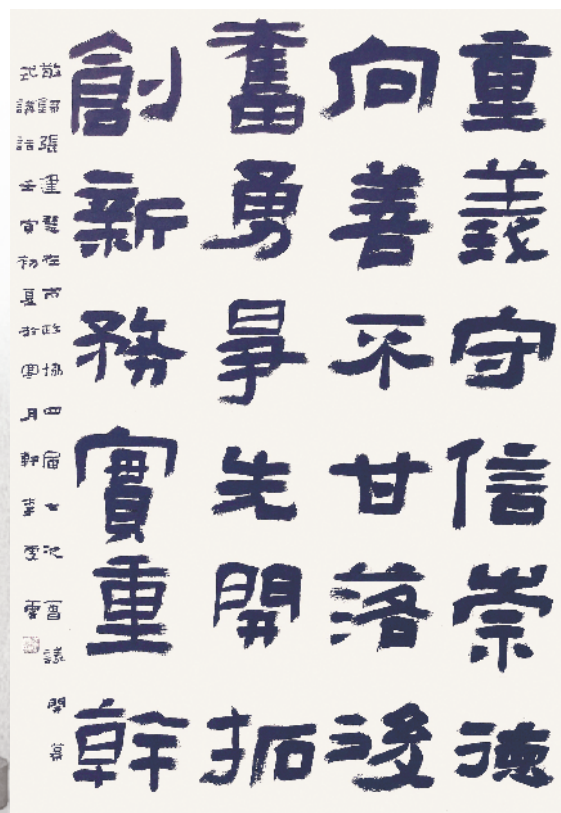 重義守信崇德
向善不甘落後
奮勇爭先開拓
創新務實重幹
敬錄張在市政協四屆七次會議開幕
式講話壬寅初夏於月軒李